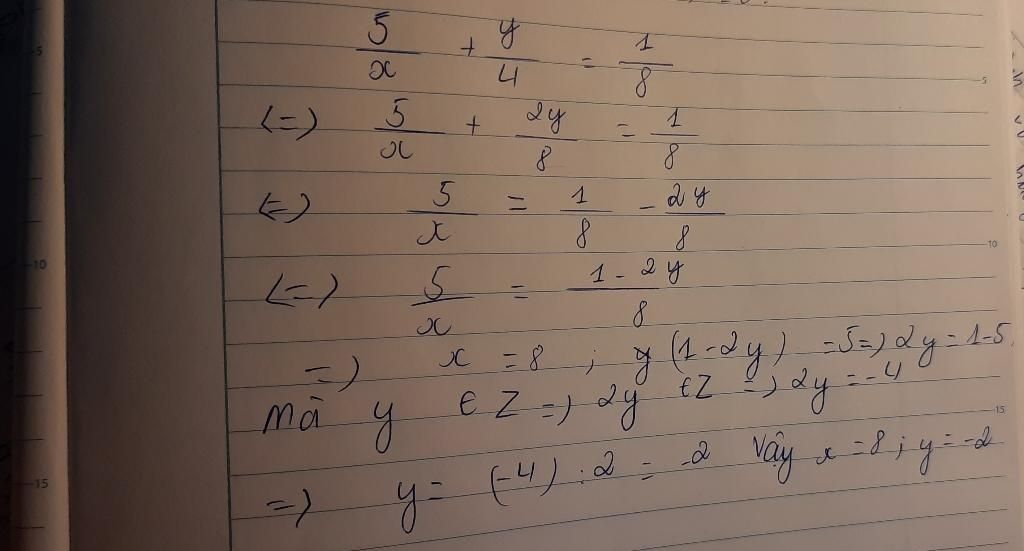 5/x + y/4 = 1/8
(=) 5/x + 2y/8 = 1/8
(=) 5/x = 1/8 - 2y/8
(=) 5/x = 1 - 2y/8
=) x = 8 ; y (1 - 2y) = 5 =) 2y = 1-5
Mà y € Z =) 2y €Z =) 2y = -4
=) y = (-4) : 2 = -2 Vậy x = 8 ; y = -2